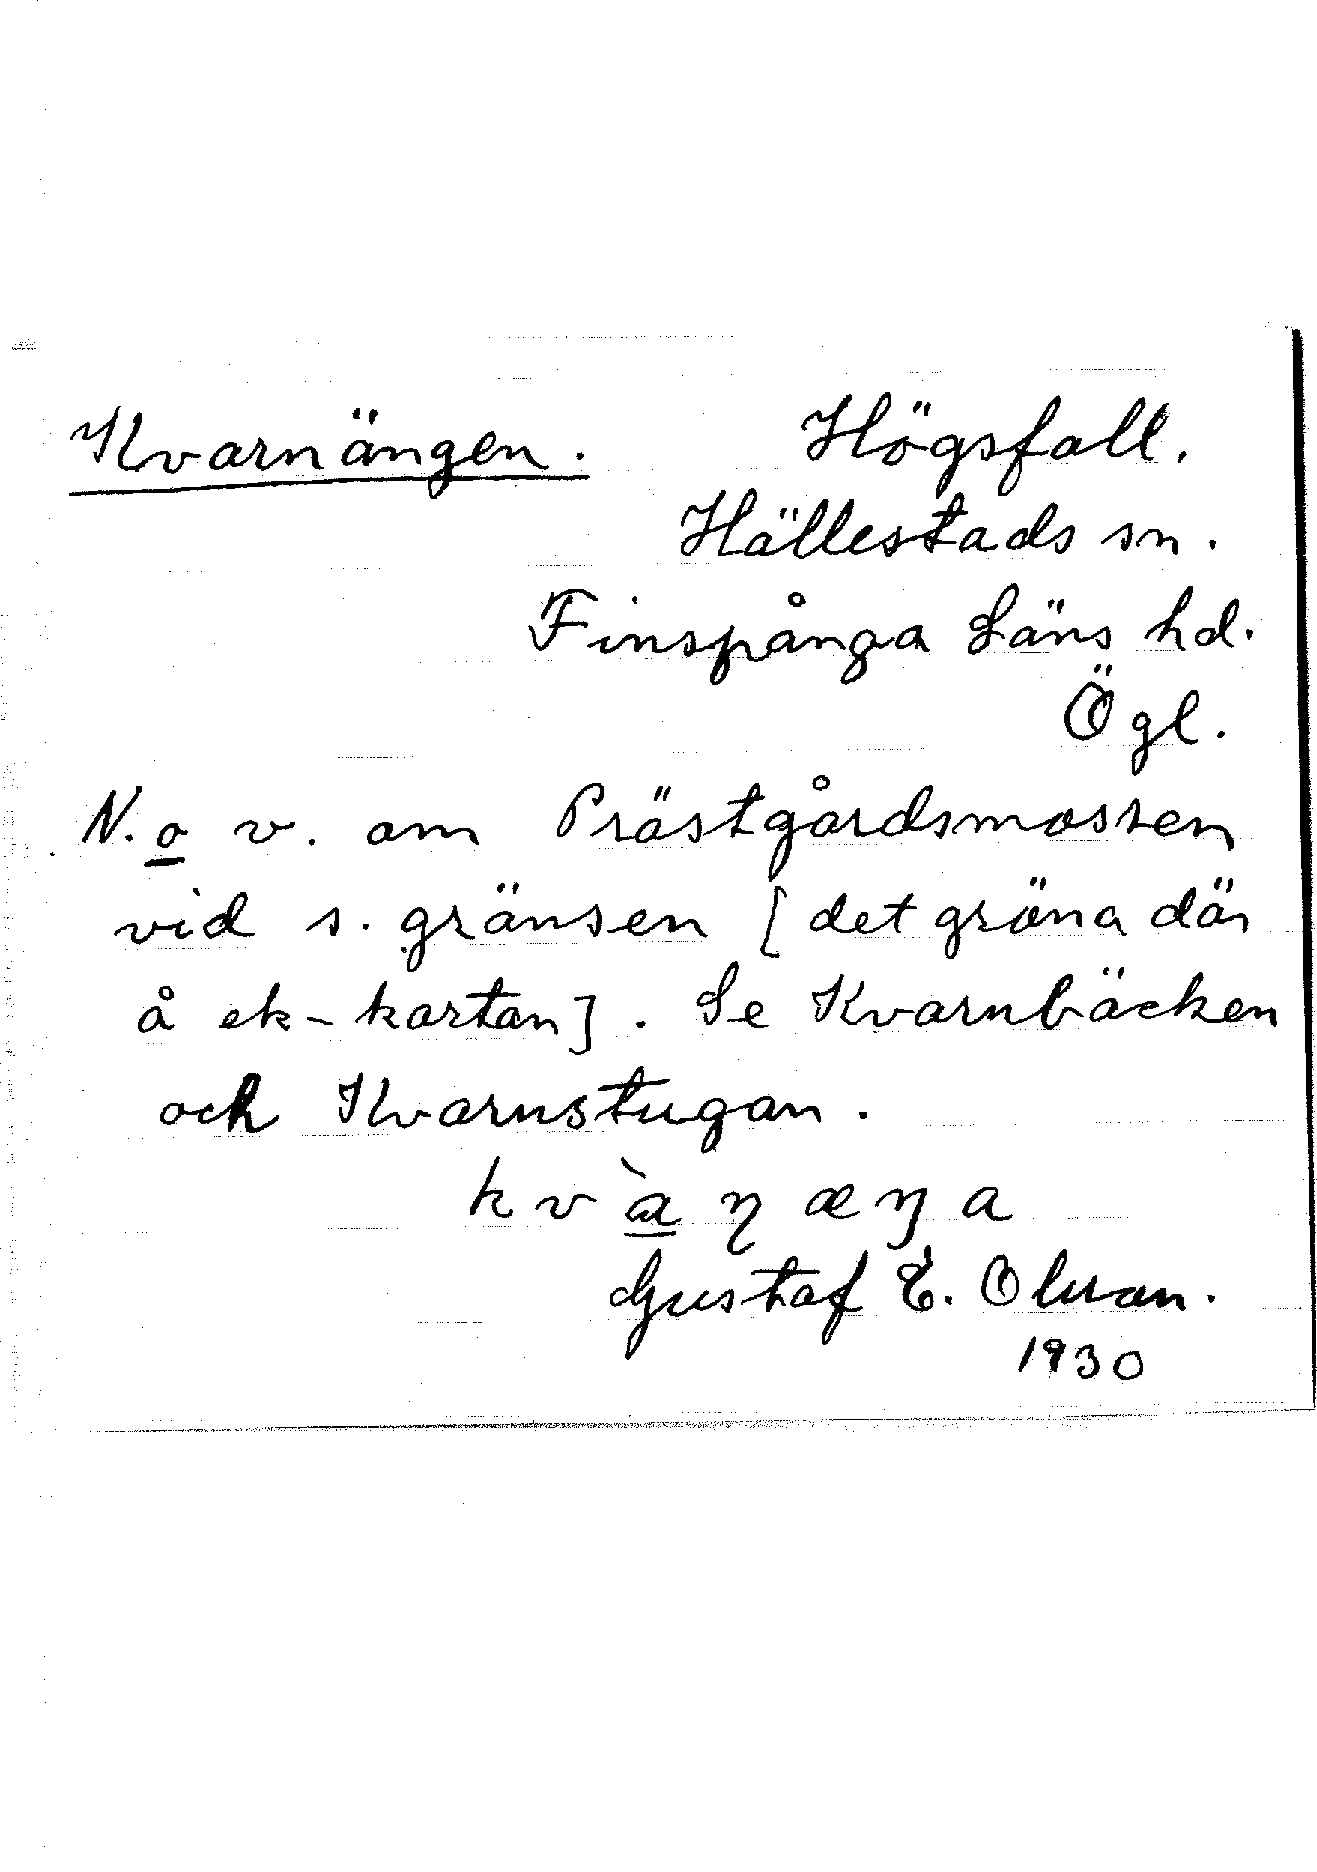 Kvarnängen. Högsfall.
Hällestads sn.
Finspånga Läns hd.
Ögl.
N. o v. om Prästgårdsmossen
vid s. gränsen [det gröna där
å ek-kartan]. Se Kvarnbäcken
och Kvarnstugan.
kvàŋæŋa
Gustaf E. Olsson.
1930